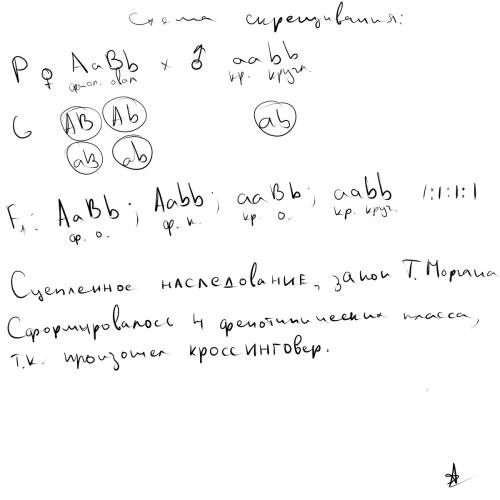 Схема скрещивания:
P ♀ AaBb × ♂ aabb
фиол. овал. кр. кругл.
G AB Ab ab
aB ab
F₁: AaBb; Aabb; aaBb; aabb 1:1:1:1
ф. о. ф. к. кр. о. кр. круг.
Сцепленное наследование, закон Т. Моргана
Сформировалось 4 фенотипических класса,
т.к. произошел кроссинговер.